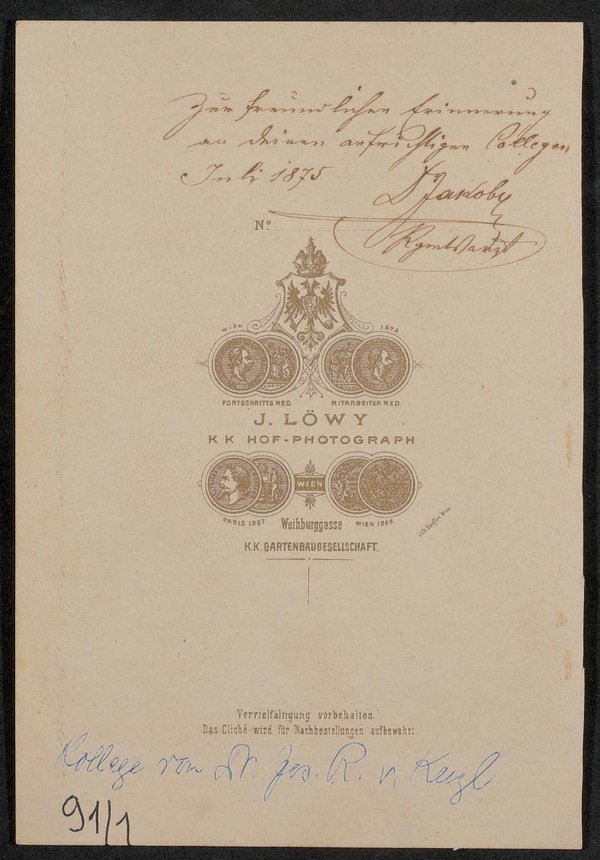 Zur freundlichen Erinnerung
an deinen aufrichtigen Collegen
Juli 1875 Dr Jakoby
Rgmtsarzt
No
WIEN 1873
FORTSCHRITTS MED. MITARBEITER MED.
J. LÖWY
K K HOF-PHOTOGRAPH
WIEN
PARIS 1867 Weihburggasse WIEN 1868
K.K. GARTENBAUGESELLSCHAFT.
Vervielfältigung vorbehalten.
Das Cliché wird für Nachbestellungen aufbewahrt.
Kollege von Dr. Jos. R. v.
91/1